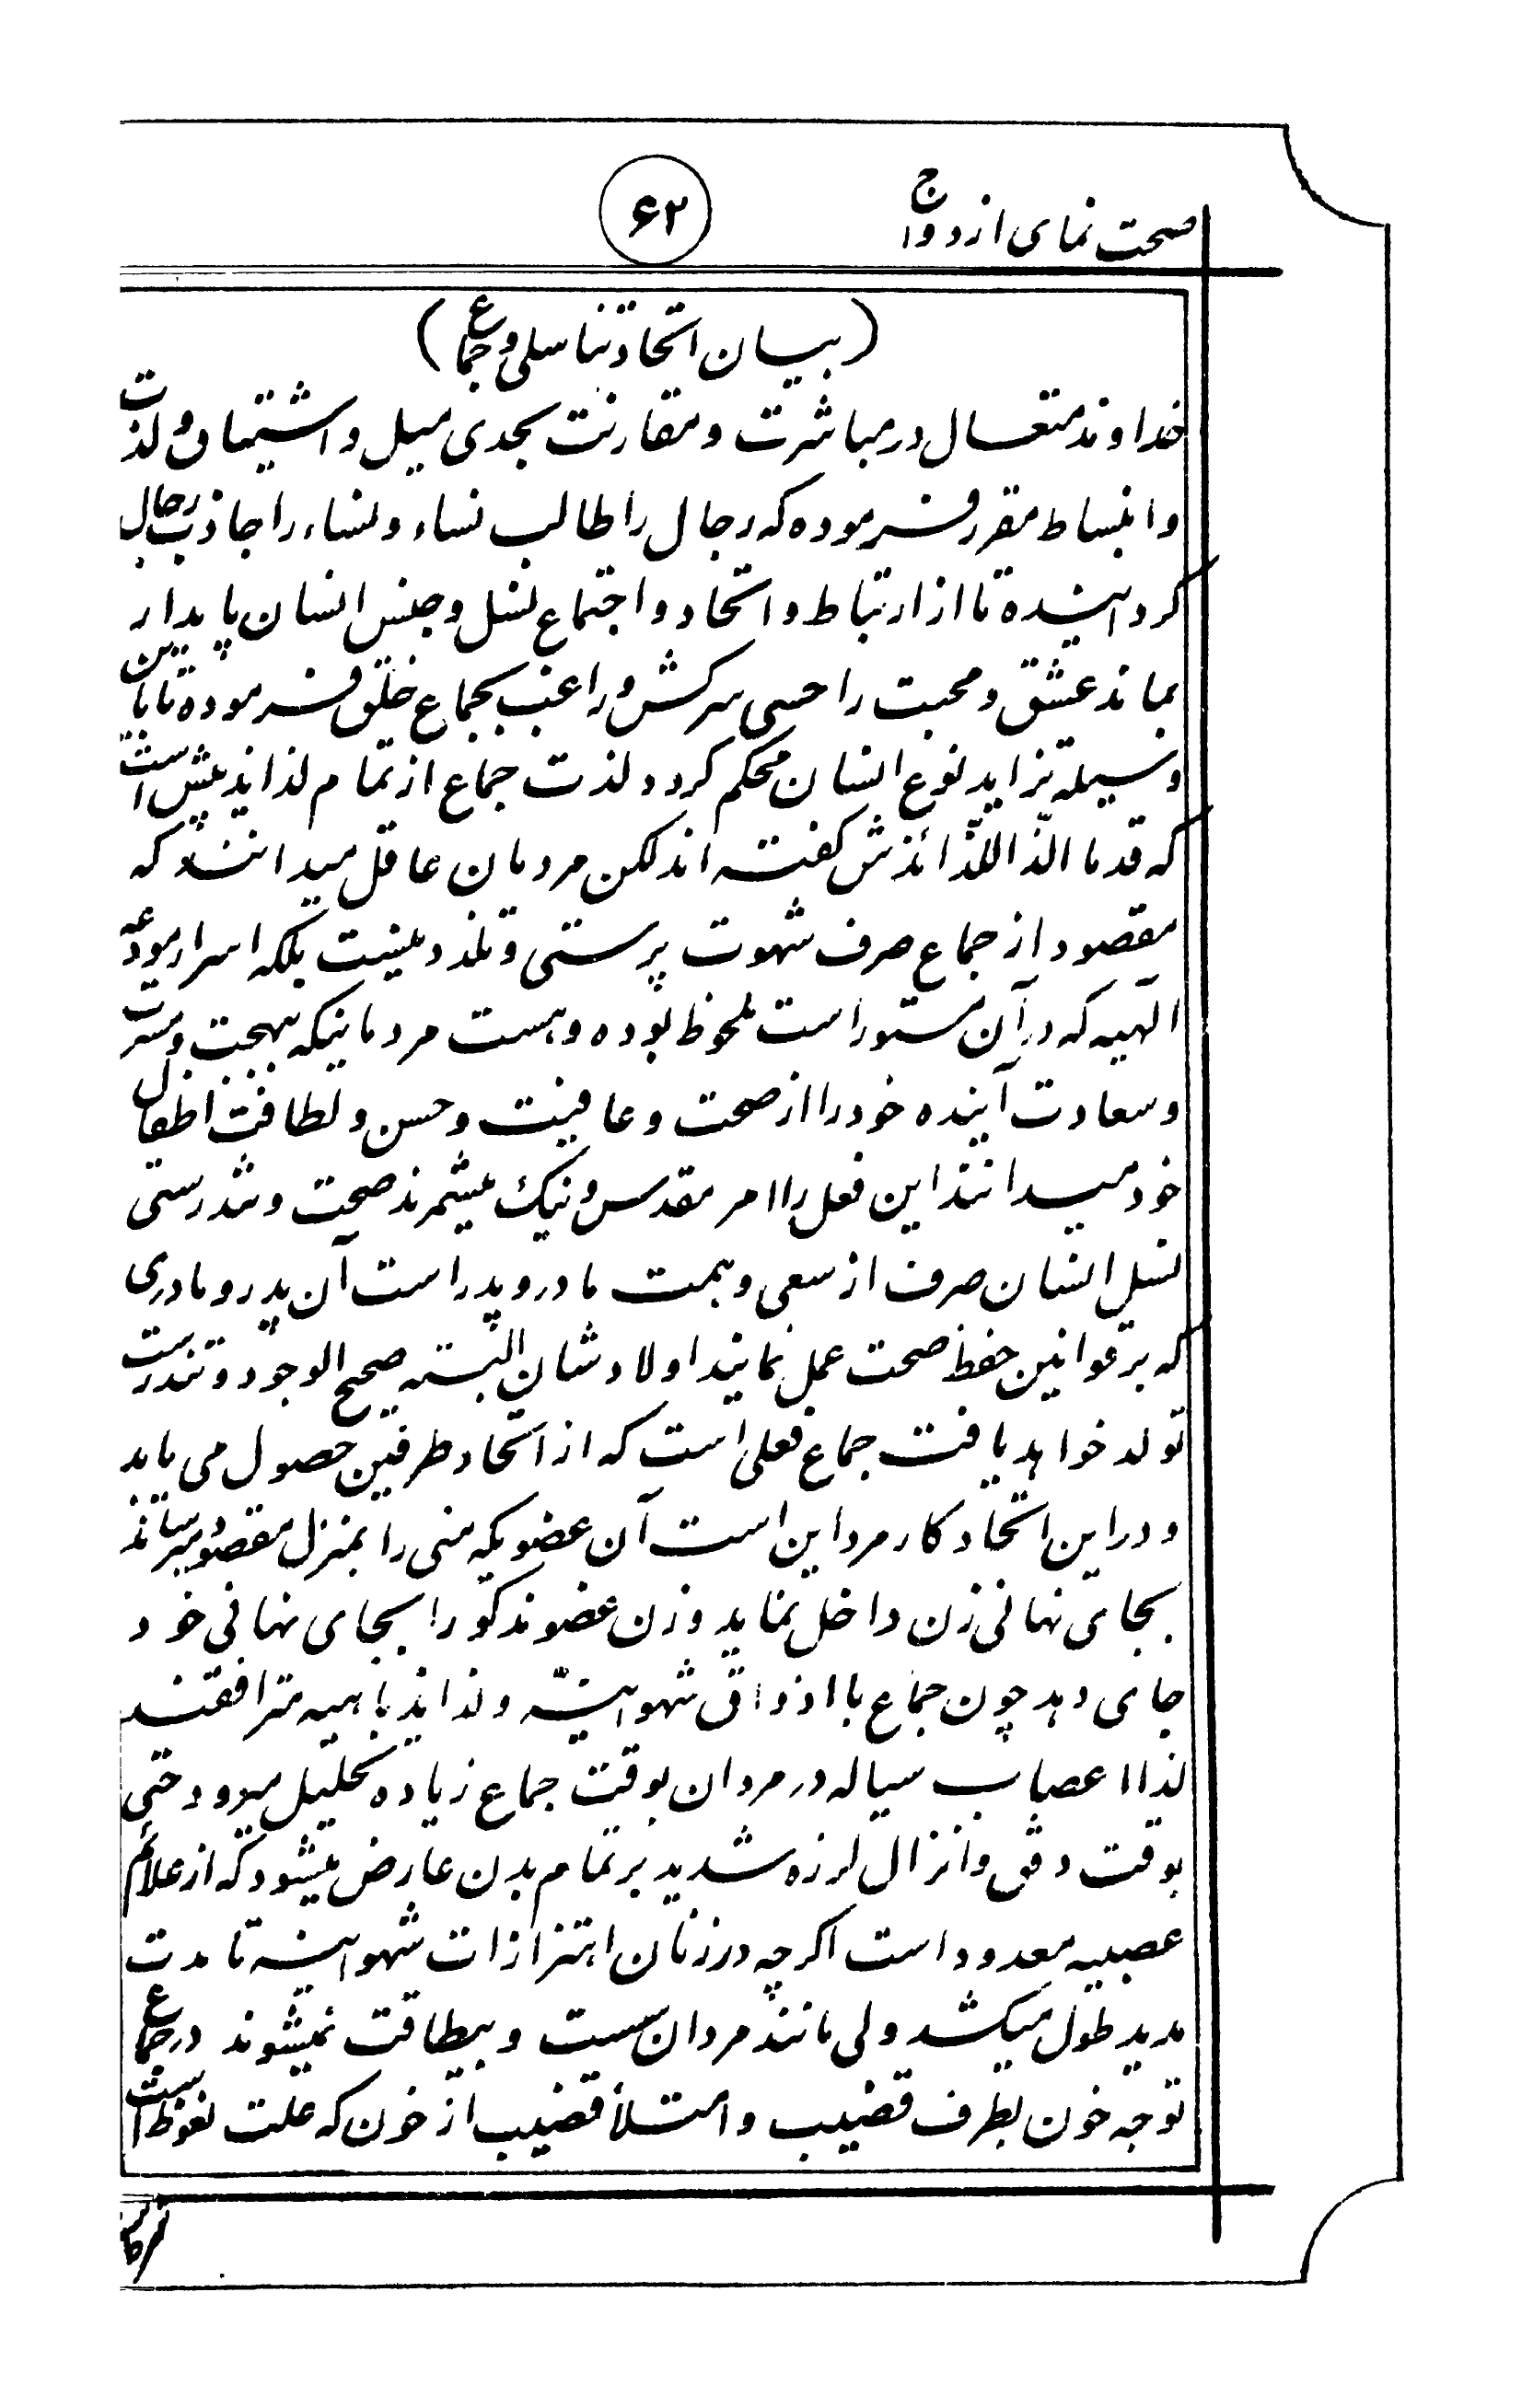 صحت نمای ازدواج
۶۲
(بیان اتحاد تناسلی و جماع)
خداوند متعال در مباشرت و مقارنت بحدی میل و اشتیاق و لذات
و انبساط مقرر فرموده که رجال را طالب نساء و نساء را جاذب رجال
گردانیده تا از ارتباط و اتحاد و اجتماع نسل و جنس انسان پایدار
بماند عشق و محبت را حسی سرکش و راغب بجماع خلق فرموده تا باین
وسیله تزاید نوع انسان محکم گردد لذت جماع از تمام لذایذ بیش است
که قدما الذّ اللذّائذش گفته اند لکن مردمان عاقل میدانند که
مقصود از جماع صرف شهوت پرستی و تلذذ نیست بلکه اسرار مودعه
آلهیه که در آن مستور است ملحوظ بوده و هست مردمانیکه بهجت و مسرت
و سعادت آینده خود را از صحت و عافیت و حسن و لطافت اطفال
خود میدانند این فعل را امر مقدس و نیک میشمرند صحت و تندرستی
نسل انسان صرف از سعی و همت مادر و پدر است آن پدر و مادری
که بر قوانین حفظ صحت عمل نمایند اولادشان البته صحیح الوجود و تندرست
تولد خواهد یافت جماع فعلی است که از اتحاد طرفین حصول می یابد
و در این اتحاد کار مرد این است آن عضویکه منی را بمنزل مقصود میرساند
بجای نهانی زن داخل نماید و زن عضو مذکور را بجای نهانی خود
جای دهد چون جماع با اذواق شهوانیّه و لذایذ باهیه مترافقند
لذا اعصاب سیاله در مردان بوقت جماع زیاده تحلیل میرود حتی
بوقت دفق و انزال لرزه شدید بر تمام بدن عارض میشود که از علائم
عصبیه معدود است اگرچه در زنان اهتزازات شهوانیه تا مدت
مدید طول میکشد ولی مانند مردان سست و بیطاقت نمیشوند در جماع
توجه خون بطرف قضیب و امتلأ قضیب از خون که علت نعوظ است